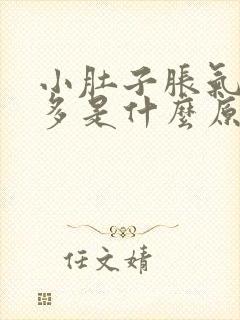 小肚子脹氣
多是什麼原
任文婧